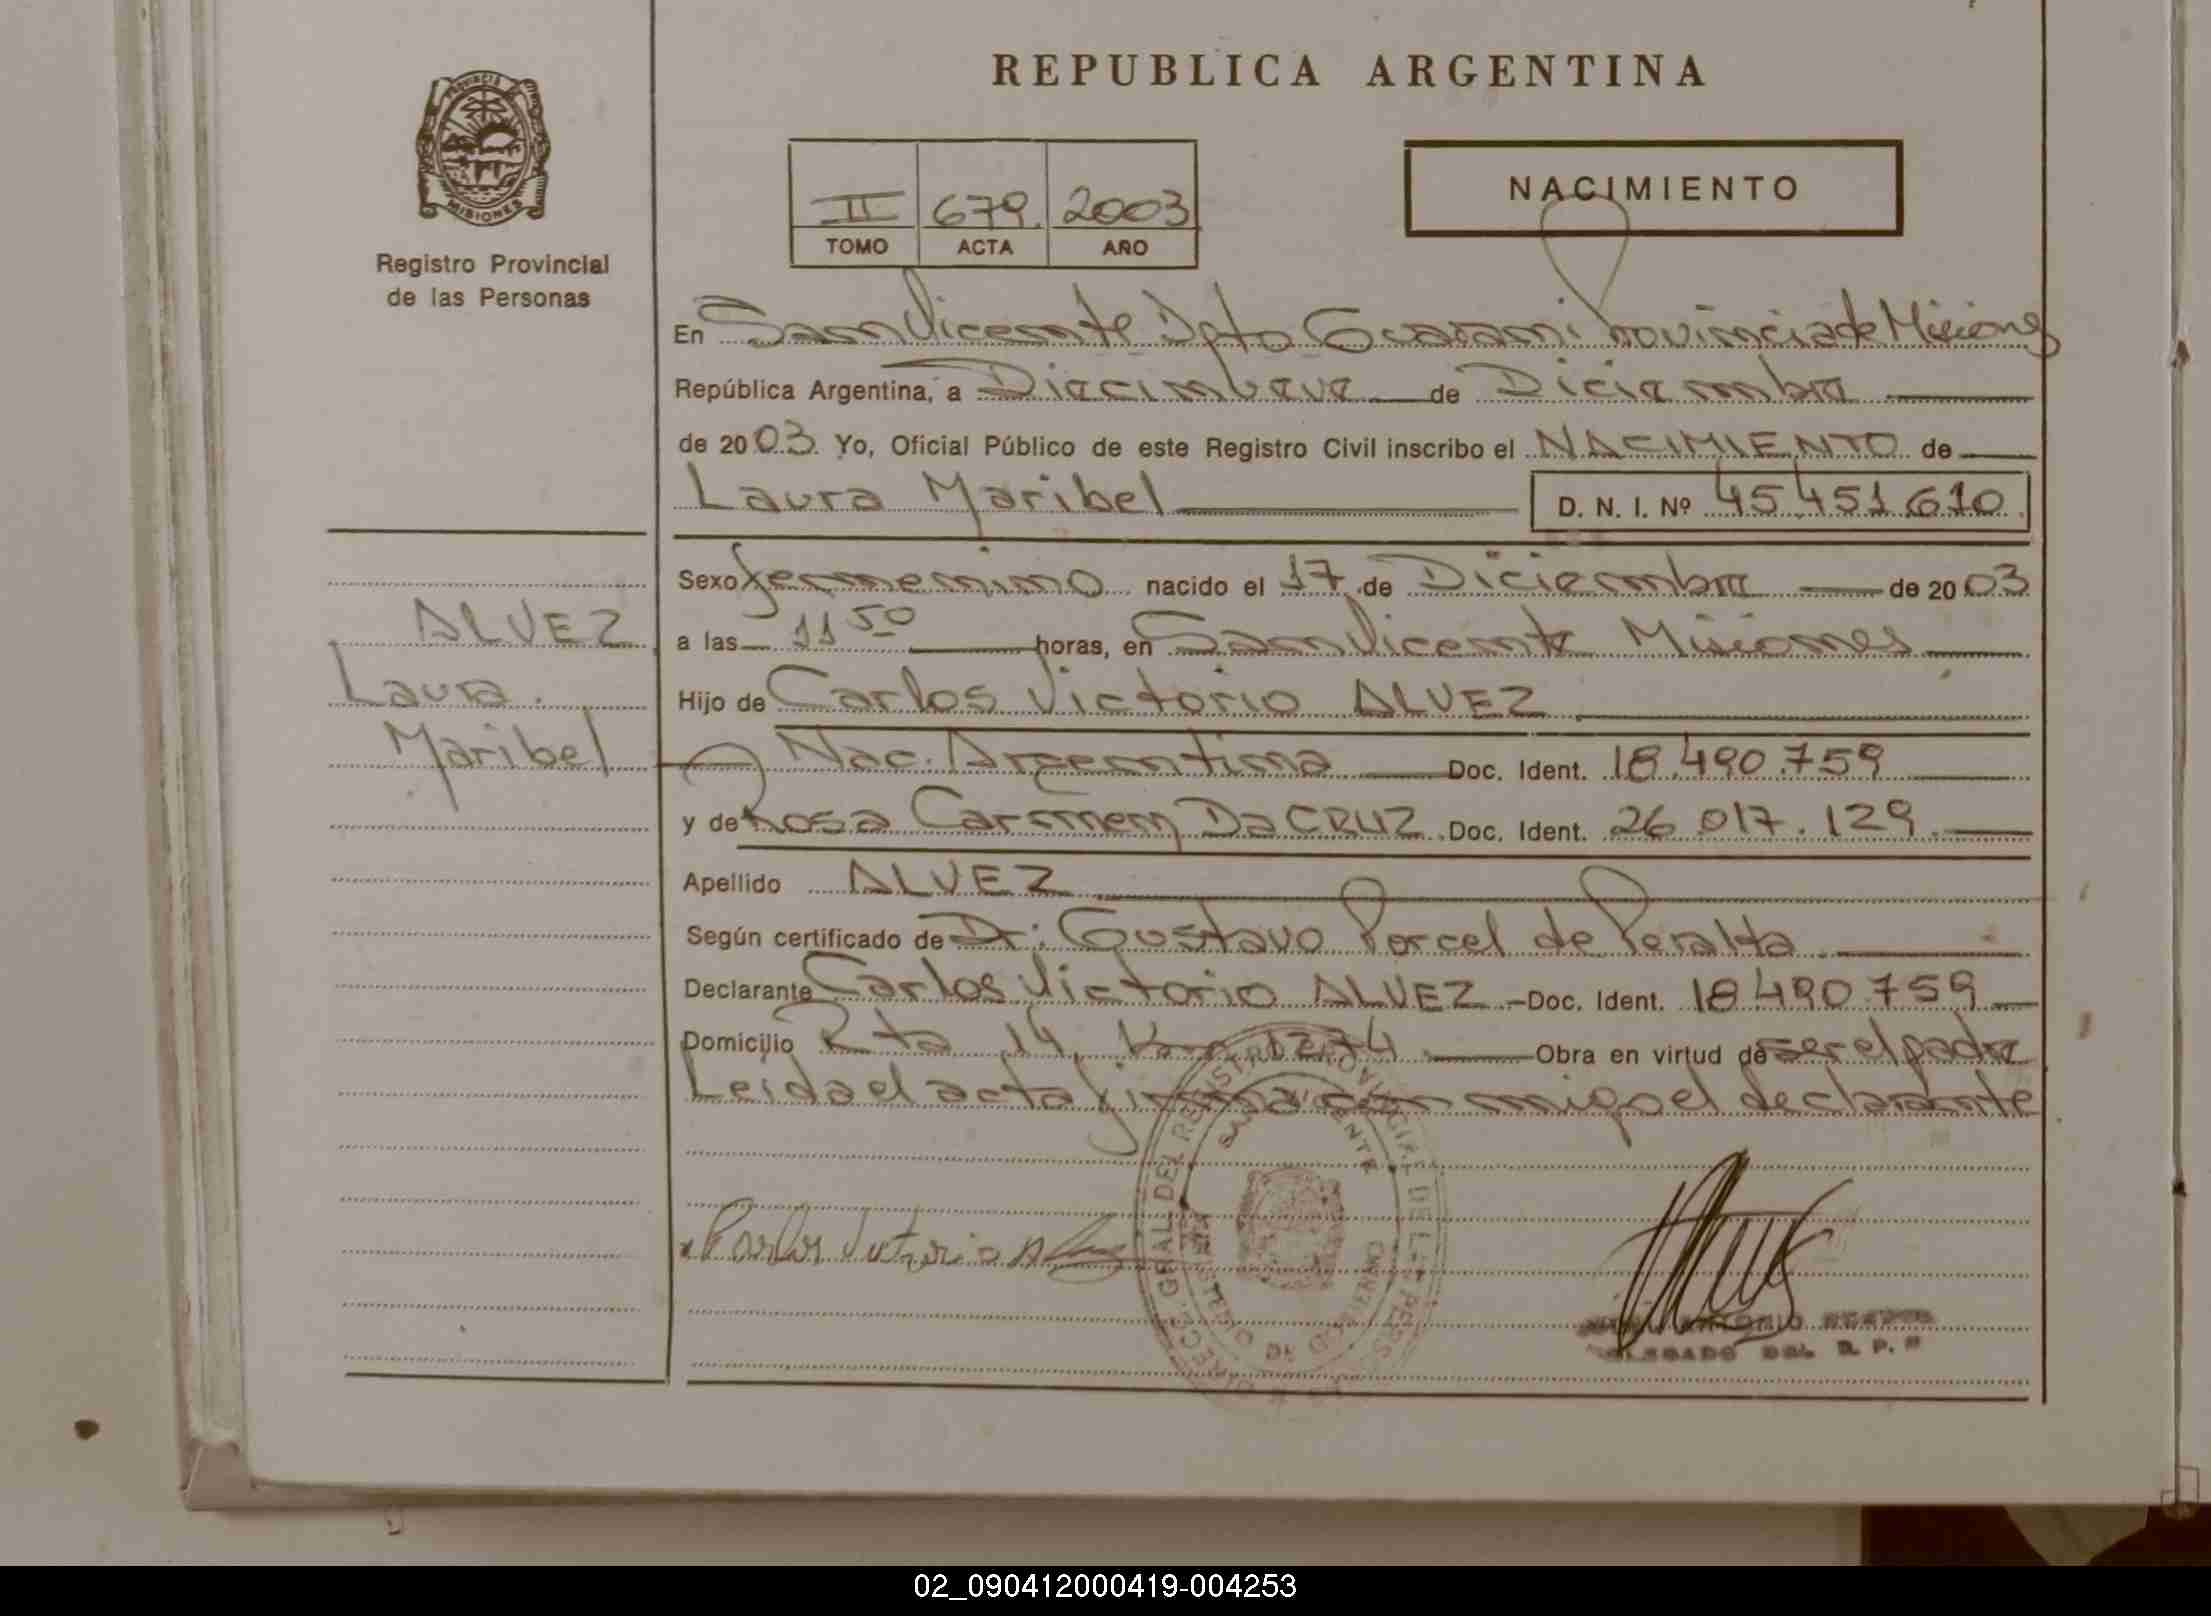 REPUBLICA ARGENTINA
PROVINCIA
MISIONES
Registro Provincial
de las Personas
II 679. 2003
TOMO ACTA AÑO
NACIMIENTO
En San Vicente Dpto Guarani Provincia de Misiones
República Argentina, a Diecinueve de Diciembre
de 2003. Yo, Oficial Público de este Registro Civil inscribo el NACIMIENTO de
Laura Maribel D. N. I. Nº 45.451.610.
Sexo femenino nacido el 17 de Diciembre de 2003
a las 11 50 horas, en San Vicente Misiones
Hijo de Carlos Victorio ALVEZ
Nac. Argentina Doc. Ident. 18.490.759
y de Rosa Carmen Da CRUZ Doc. Ident. 26.017.129.
Apellido ALVEZ
Según certificado de Dr. Gustavo Porcel de Peralta
Declarante Carlos Victorio ALVEZ Doc. Ident. 18.490.759
Domicilio Rta 14 Km 1274 Obra en virtud de ser el padre
Leida el acta firma con migo el declarante
ALVEZ
Laura
Maribel
Carlos Victorio Alvez
DIRECC. GRAL. DEL REGISTRO PROVINCIAL DE LAS PERSONAS
SAN VICENTE
MINISTERIO DE GOBIERNO
ANTONIO
DELEGADO DEL R. P. P.
02_090412000419-004253